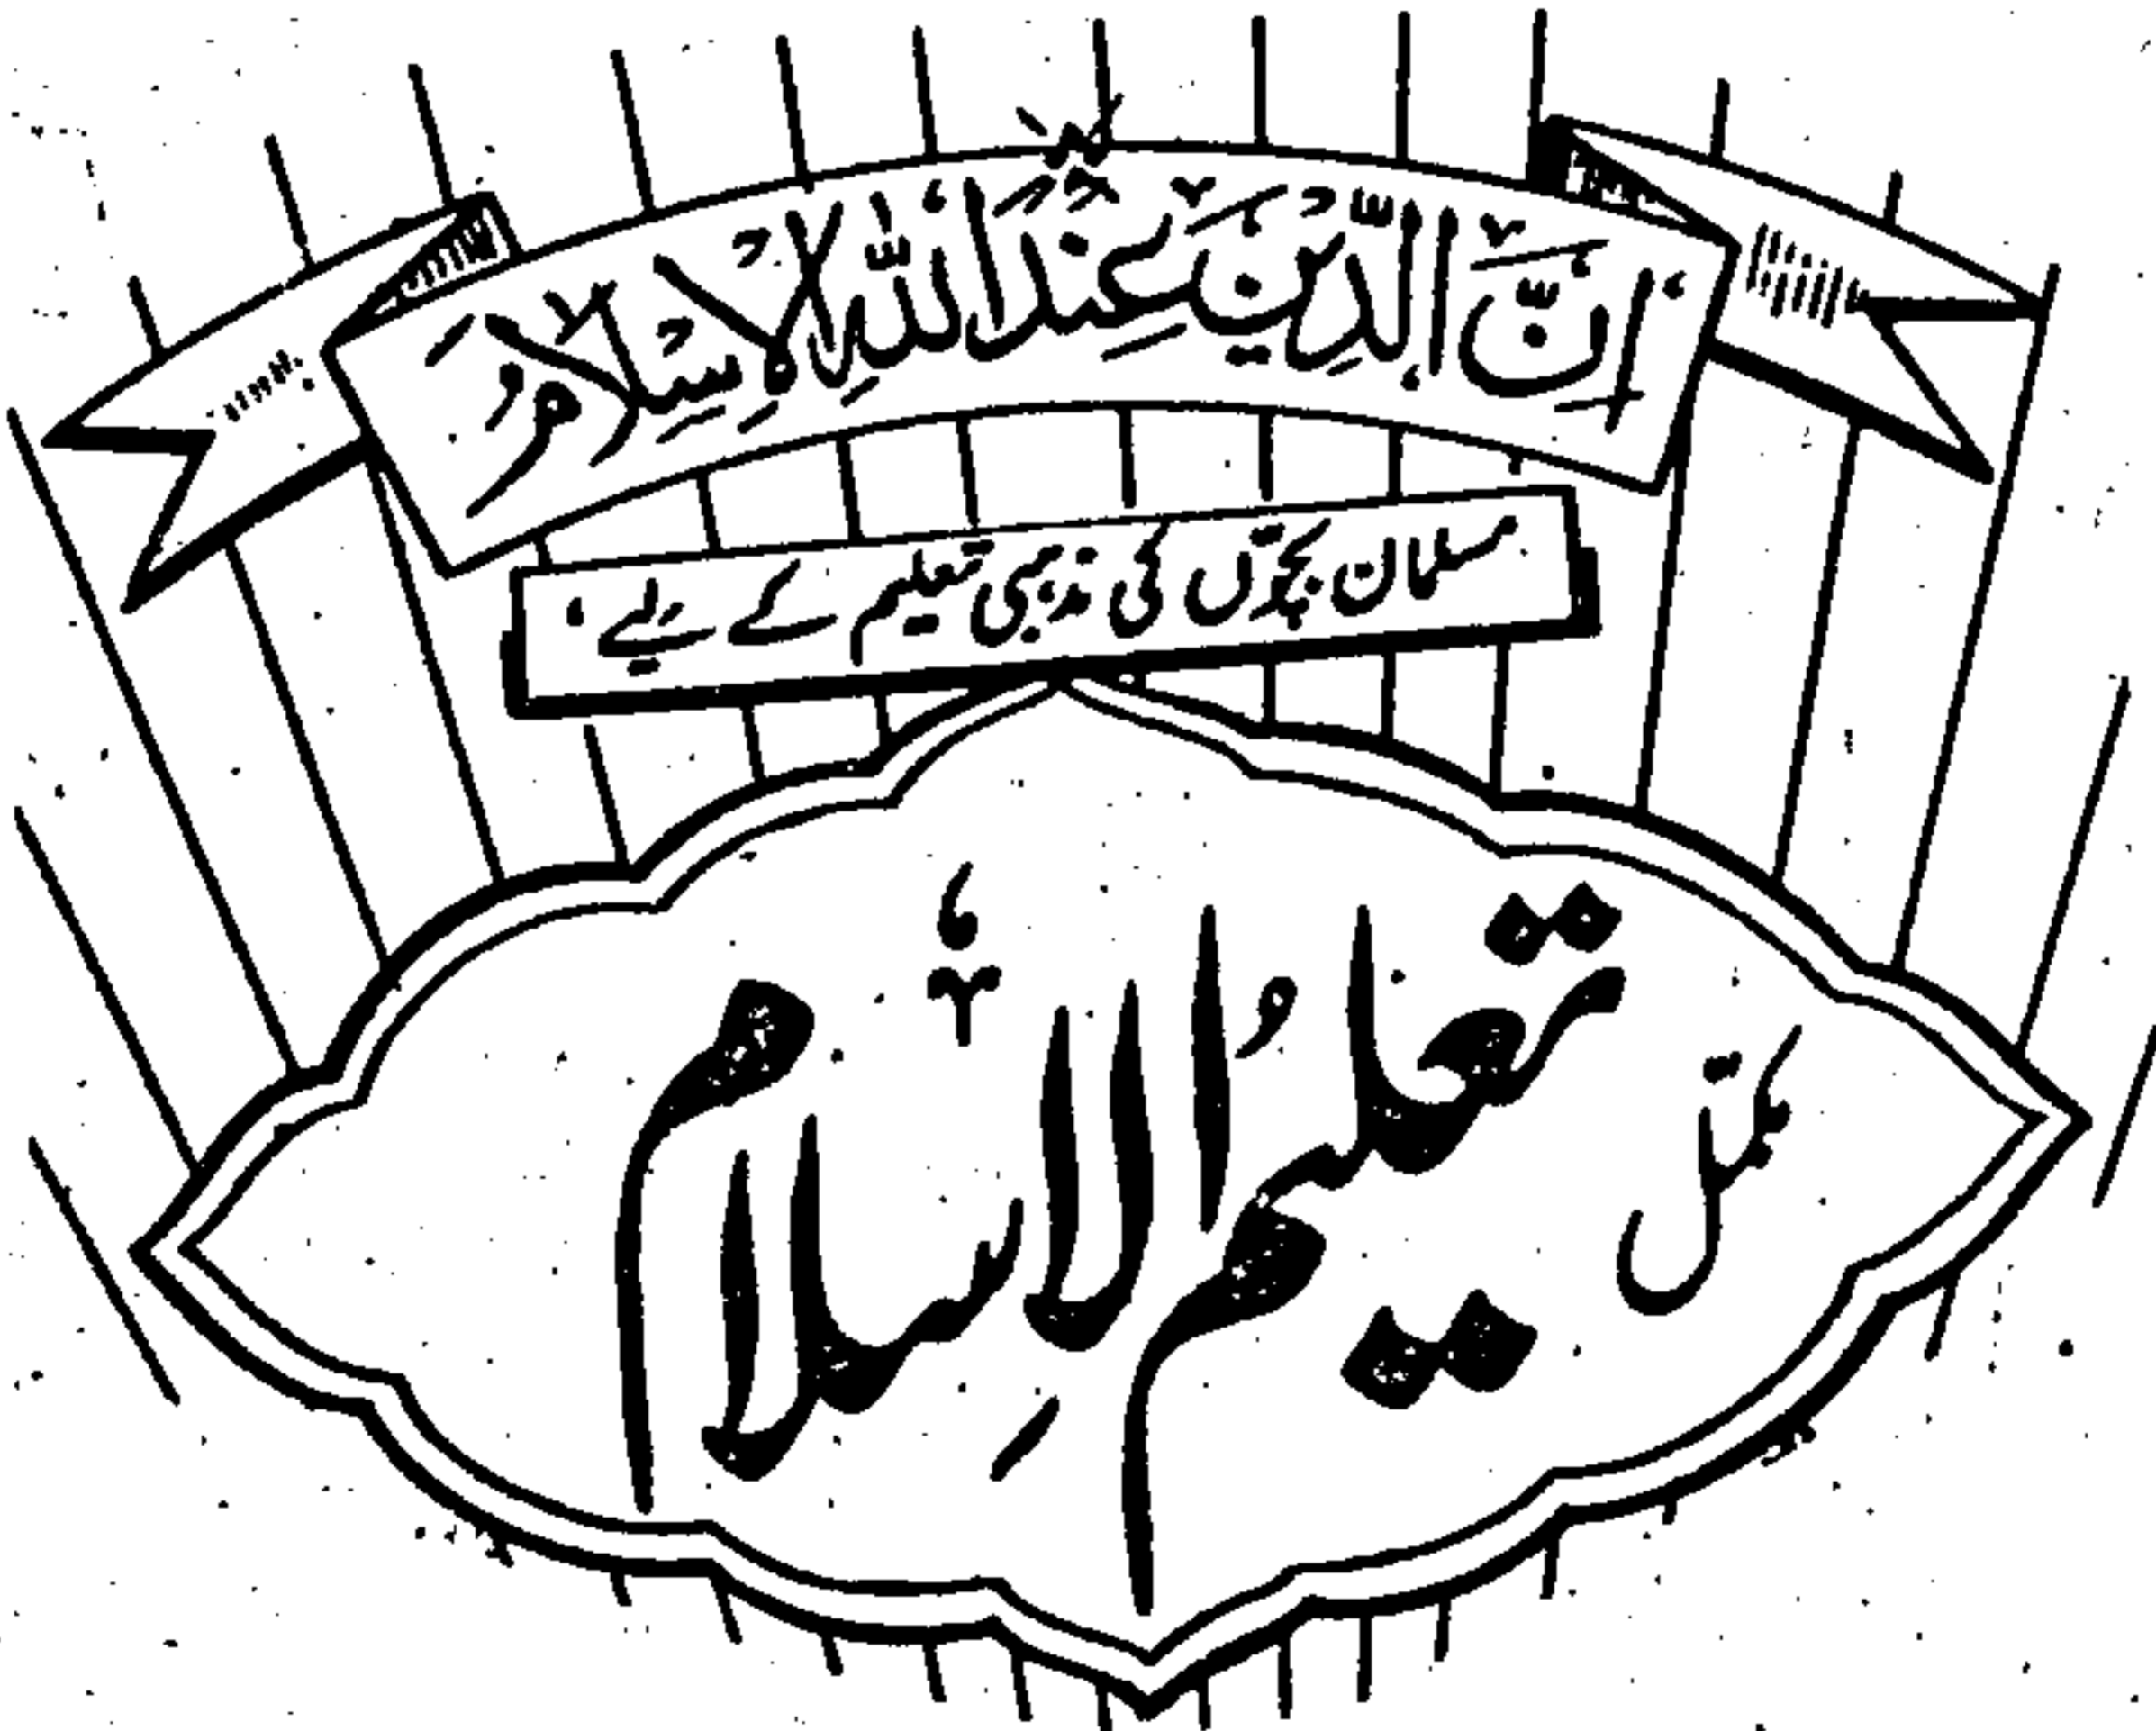 إِنَّ الدِّينَ عِنْدَ اللَّهِ الْإِسْلَامُ
مسلمان بچوں کی مذہبی تعلیم کے لیے
تعلیم الاسلام